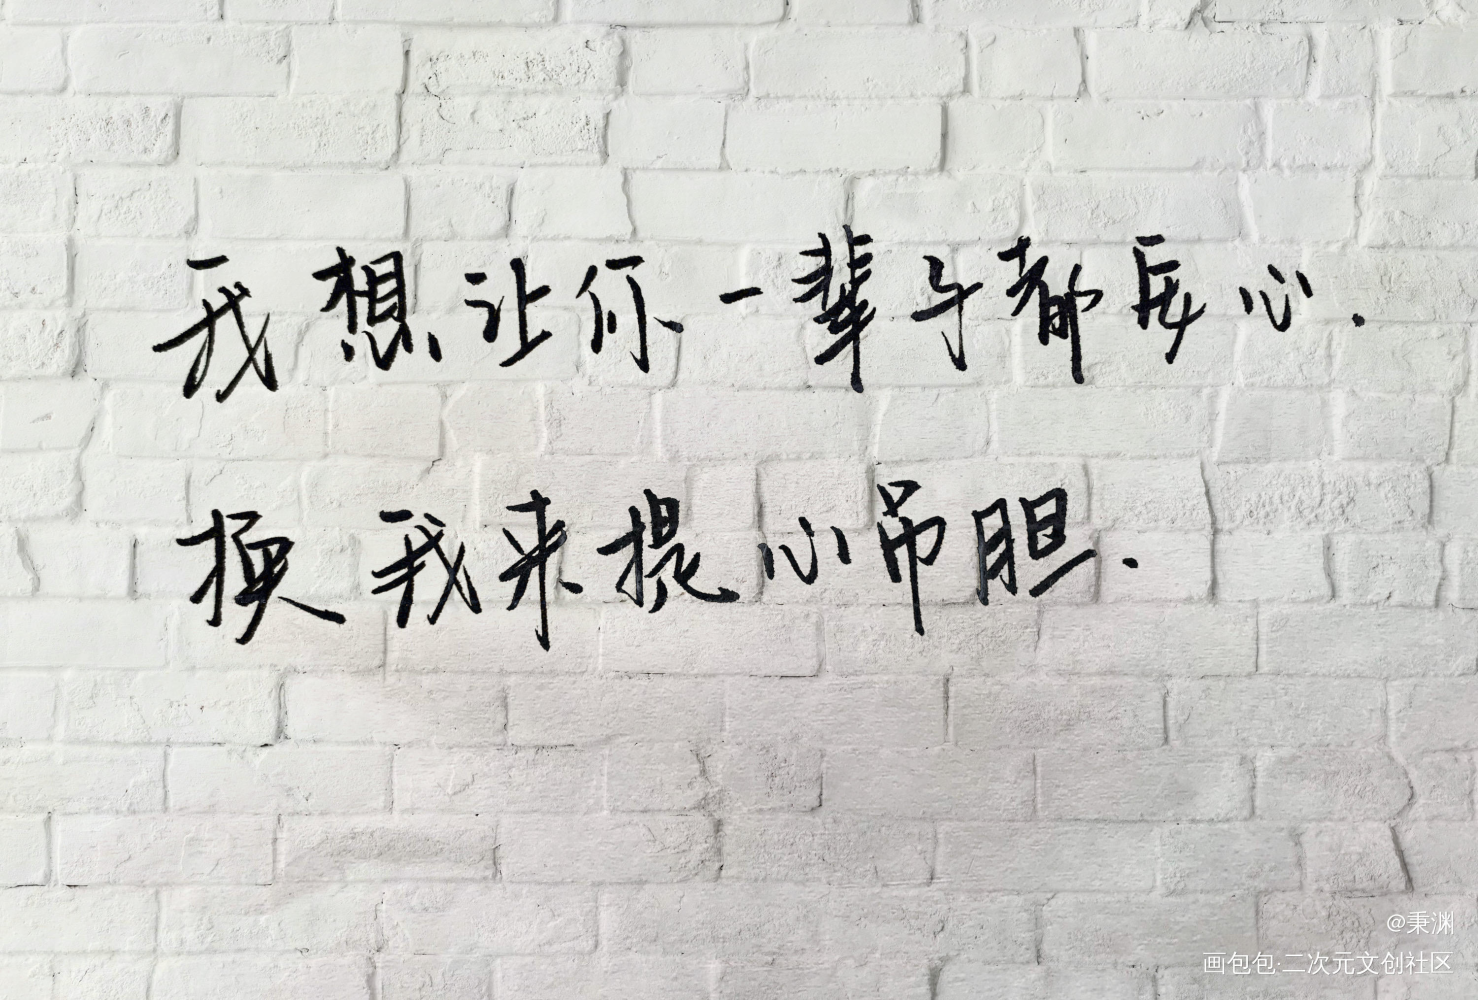 我想让你一辈子都安心.
换我来提心吊胆.
@秉渊
画包包·二次元文创社区